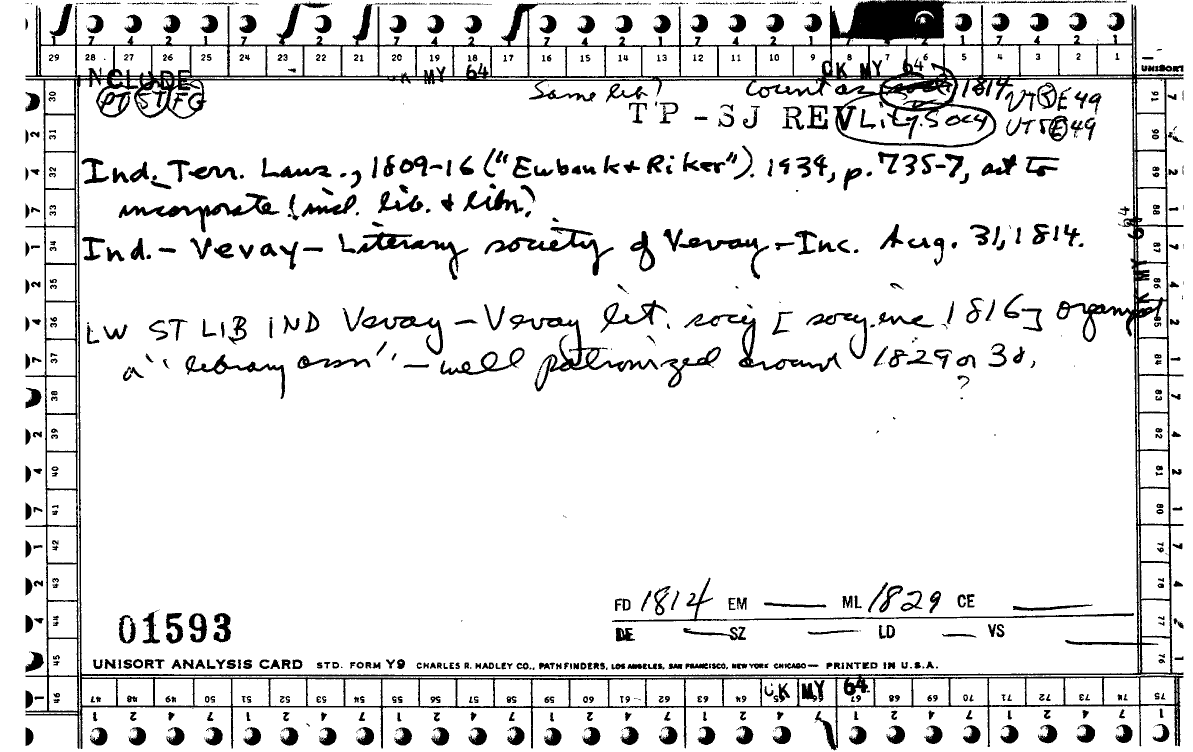 7 4 2 1 7 4 2 1 7 4 2 1 7 4 2 1 7 4 2 1 7 4 2 1 7 4 2 1
29 28 27 26 25 24 23 22 21 20 19 18 17 16 15 14 13 12 11 10 9 8 7 6 5 4 3 2 1
UNISORT
INCLUDE
CK MY 64
CK MY 64
PT ST FG
Same lib? Count as 1814
VT5E49
TP-SJ REV Lity. Socy
VT5E49
Ind. Terr. Laws., 1809-16 ("Ewbank + Riker"). 1934, p. 735-7, act to
incorporate (incl. lib. + libn)
Ind. - Vevay - Literary society of Vevay - Inc. Aug. 31, 1814.
LW ST LIB IND Vevay - Vevay lit. socy [socy. inc. 1816] organized
a "library assn" - well patronized around 1829 or 30.
?
FD 1814 EM — ML 1829 CE —
DE — SZ — LD — VS —
01593
UNISORT ANALYSIS CARD STD. FORM Y9 CHARLES R. HADLEY CO., PATHFINDERS, LOS ANGELES, SAN FRANCISCO, NEW YORK CHICAGO — PRINTED IN U.S.A.
CK MY 64
47 48 49 50 51 52 53 54 55 56 57 58 59 60 61 62 63 64 65 66 67 68 69 70 71 72 73 74 75